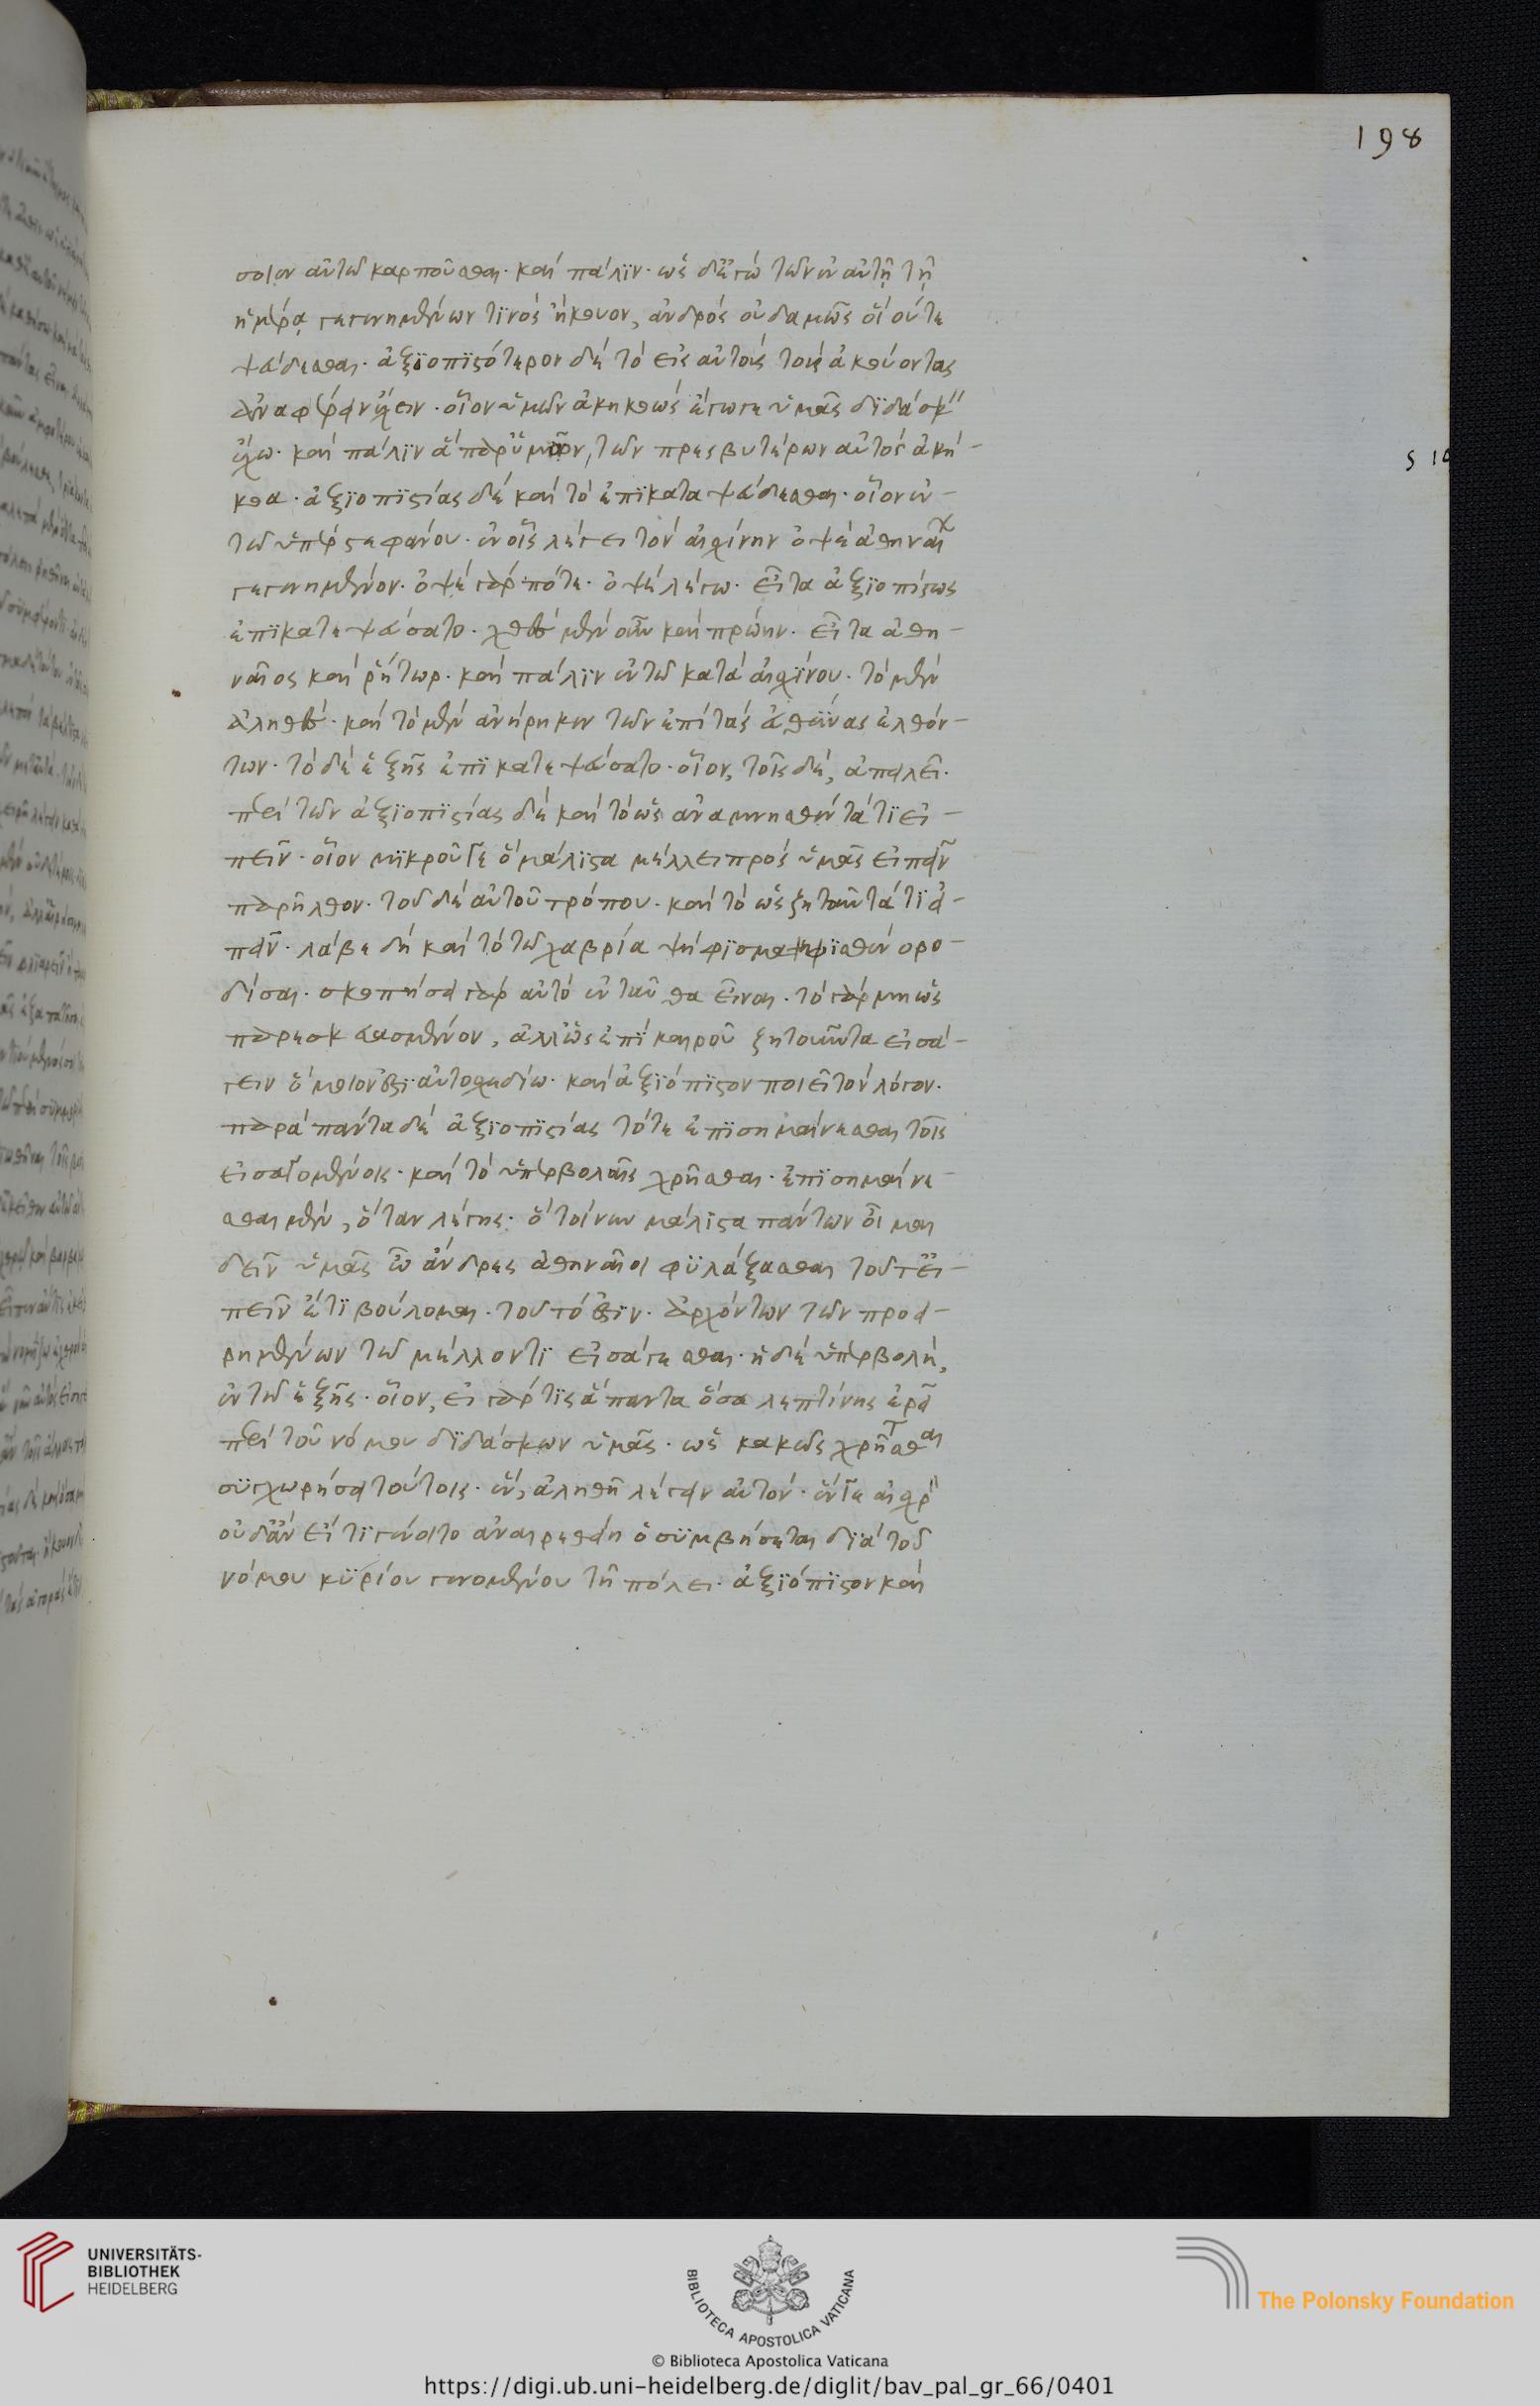 198
σοιον αὐτῶ καρποῦσθαι· καὶ πάλϊν· ὡς δ' ἐγὼ τῶν ἐν αὐτῆ τῆ
ἡμέρα γεγενημένων τϊνὸς ἤκουον, ἀνδρὸς οὐδαμῶς οἵου τε
ψεύδεσθαι· ἀξϊοπϊστότερον δὲ τὸ εἰς αὐτοὺς τοὺς ἀκούοντας
ἀναφέρειν ἔχειν· οἷον ὑμῶν ἀκηκοὼς ἔγωγε ὑμᾶς δϊδάσκ"
ἔχω· καὶ πάλϊν ἅπερ ὑμῶν, τῶν πρεσβυτέρων αὐτὸς ἀκή-
κοα· ἀξϊοπϊστίας δὲ καὶ τὸ ἐπϊκαταψεύδεσθαι· οἷον ἐν-
τῶ ὑπὲρ στεφάνου· ἐν οἷς λέγει τὸν αἰσχίνην ὀψὲ ἀθηναῖ
γεγενημένον· ὀψὲ γάρ ποτε· ὀψὲ λέγω· εἶτα ἀξϊοπίστως
ἐπϊκατεψεύσατο· χθὲς μὲν οὖν καὶ πρώην· εἶτα ἀθη-
ναῖος καὶ ῥήτωρ· καὶ πάλϊν ἐν τῶ κατὰ αἰσχϊνου· τὸ μὲν
ἀληθὲς· καὶ τὸ μὲν ἀνήρηκεν τῶν ἐπὶ τὰς ἀθήνας ἐλθόν-
των· τὸ δὲ ἑξῆς ἐπϊκατεψεύσατο· οἷον, τοῖς δὲ, ἀπειλεῖ·
περὶ τῶν ἀξϊοπϊστίας δὲ καὶ τὸ ὡς ἀναμνησθέντα τϊ εἰ-
πεῖν· οἷον μϊκροῦ γε ὃ μάλϊστα μέλλει πρὸς ὑμᾶς εἰπεῖν
παρῆλθον· τοῦ δὲ αὐτοῦ τρόπου· καὶ τὸ ὡς ζητοῦντά τϊ εἰ-
πεῖν· λάβε δὴ καὶ τὸ τῶ χαβρία ψήφϊσμα ψηφϊσθὲν ορο-
δίσαι· σκοπήσει γὰρ αὐτὸ ἐνταῦθα εἶναι· τὸ γὰρ μὴ ὡς
παρεσκευασμένον, ἀλλ' ὡς ἐπὶ καιροῦ ζητοῦντα εἰσά-
γειν ὅμοιον ἐστϊ αὐτοσχεδίω· καὶ ἀξϊόπϊστον ποιεῖ τὸν λόγον·
παρὰ πάντα δὲ ἀξϊοπϊστίας τό τε ἐπϊσημαίνεσθαι τοῖς
εἰσαγομένοις· καὶ τὸ ὑπερβολαῖς χρῆσθαι· ἐπϊσημαίνε-
σθαι μὲν, ὅταν λέγης· ὃ τοίνυν μάλϊστα πάντων οἶμαι
δεῖν ὑμᾶς ὦ ἄνδρες ἀθηναῖοι φϋλάξασθαι τοῦτ' εἰ-
πεῖν ἔτϊ βούλομαι· τοῦτό ἐστϊν· ἀρχόντων τῶν προει-
ρημένων τῶ μέλλοντϊ εἰσάγεσθαι· ἡ δὲ ὑπερβολὴ,
ἐν τῶ ἑξῆς· οἷον, εἰ γάρ τϊς ἅπαντα ὅσα λεπτίνης ἐρεῖ
περὶ τοῦ νόμου δϊδάσκων ὑμᾶς· ὡς κακῶς χρῆσθαι
συγχωρήσει τούτοις· ἓν, ἀληθῆ λέγειν αὐτὸν· ἕν γε αἰσχρ"
οὐδ' ἂν εἴ τϊ γένοιτο ἀναιρεθείη ὃ σϋμβήσεται δϊὰ τοῦ
νόμου κϋρίου γενομένου τῆ πόλει· ἀξϊόπϊστον καὶ
UNIVERSITÄTS-
BIBLIOTHEK
HEIDELBERG
BIBLIOTECA APOSTOLICA VATICANA
© Biblioteca Apostolica Vaticana
The Polonsky Foundation
https://digi.ub.uni-heidelberg.de/diglit/bav_pal_gr_66/0401